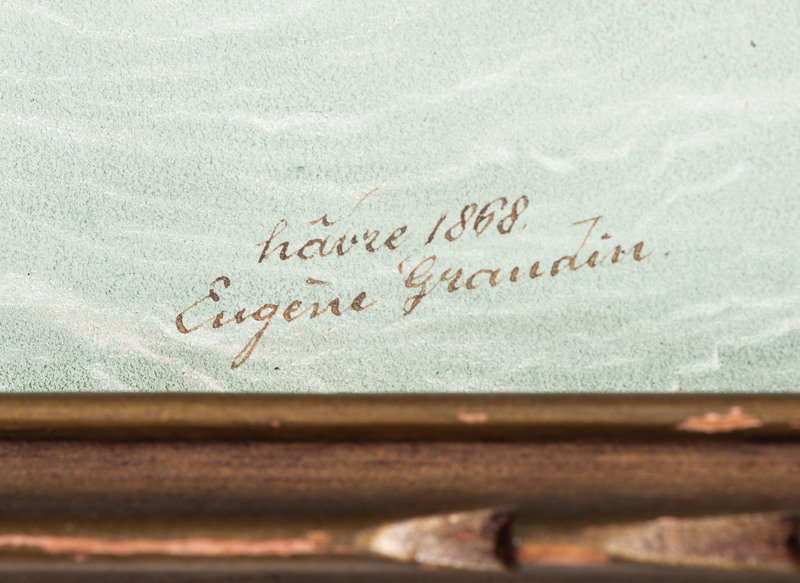 hâvre 1868.
Eugène Grandin.